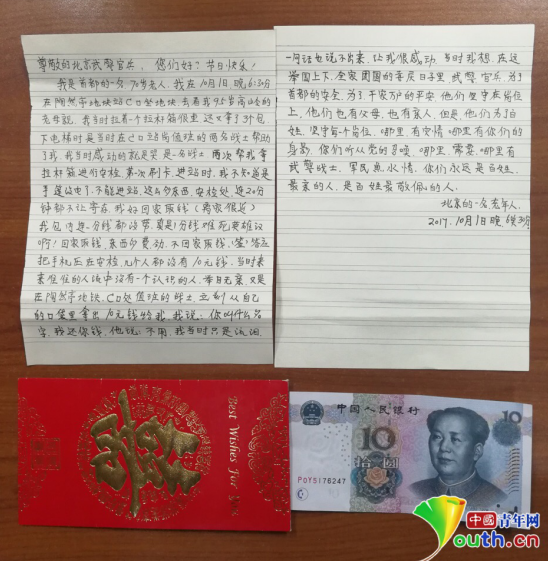 尊敬的北京武警官兵，您们好？节日快乐！
我是首都的一名70岁老人，我在10月1日，晚6:30分
在陶然亭地铁站C口坐地铁，去看我95岁高龄的
老母亲，我当时拉着一个拉杆箱很重，还又拿了3个包
下电梯时是当时在C口站岗值班的两名战士帮助
了我，我当时感动的就是哭是一名战士两次帮我拿
拉杆箱进行安检，第一次刷卡，进站时，我不知道是
卡里没电了，不能进站，这么多东西，安检处，连20分
钟都不让寄存，我好回家取钱（离家很近）
我包内连一分钱都没带，真是1分钱难死英雄汉
啊！回家取钱，东西多费劲，不回家取钱，
把手机压在安检，几个人都没有10元钱，当时来
来往往的人流中没有一个认识的人，举目无亲，又是
在陶然亭地铁，C口处值班的战士，立刻从自己
的口袋里拿出10元钱给我，我说：你叫什么名
字，我还你钱，他说：不用，我当时只是流泪，
一句话也说不出来，让我很感动，当时我想，在这
举国上下，全家团圆的喜庆日子里，武警官兵，为了
首都的安全，为了千家万户的平安，他们坚守在岗位
上，他们也有父母，也有亲人，但是，他们为了百
姓，坚守每个岗位，哪里，有灾情，哪里有你们的
身影，你们听从党的召唤，哪里，需要，哪里有
武警战士，军民鱼水情，你们永远是百姓，
最亲的人，是百姓最敬佩的人。
北京的一名老年人
2017.10月1日晚，6点30分
Best Wishes For You
中国人民银行
10
10
拾圆
P0Y5176247
中國青年网
Youth.cn